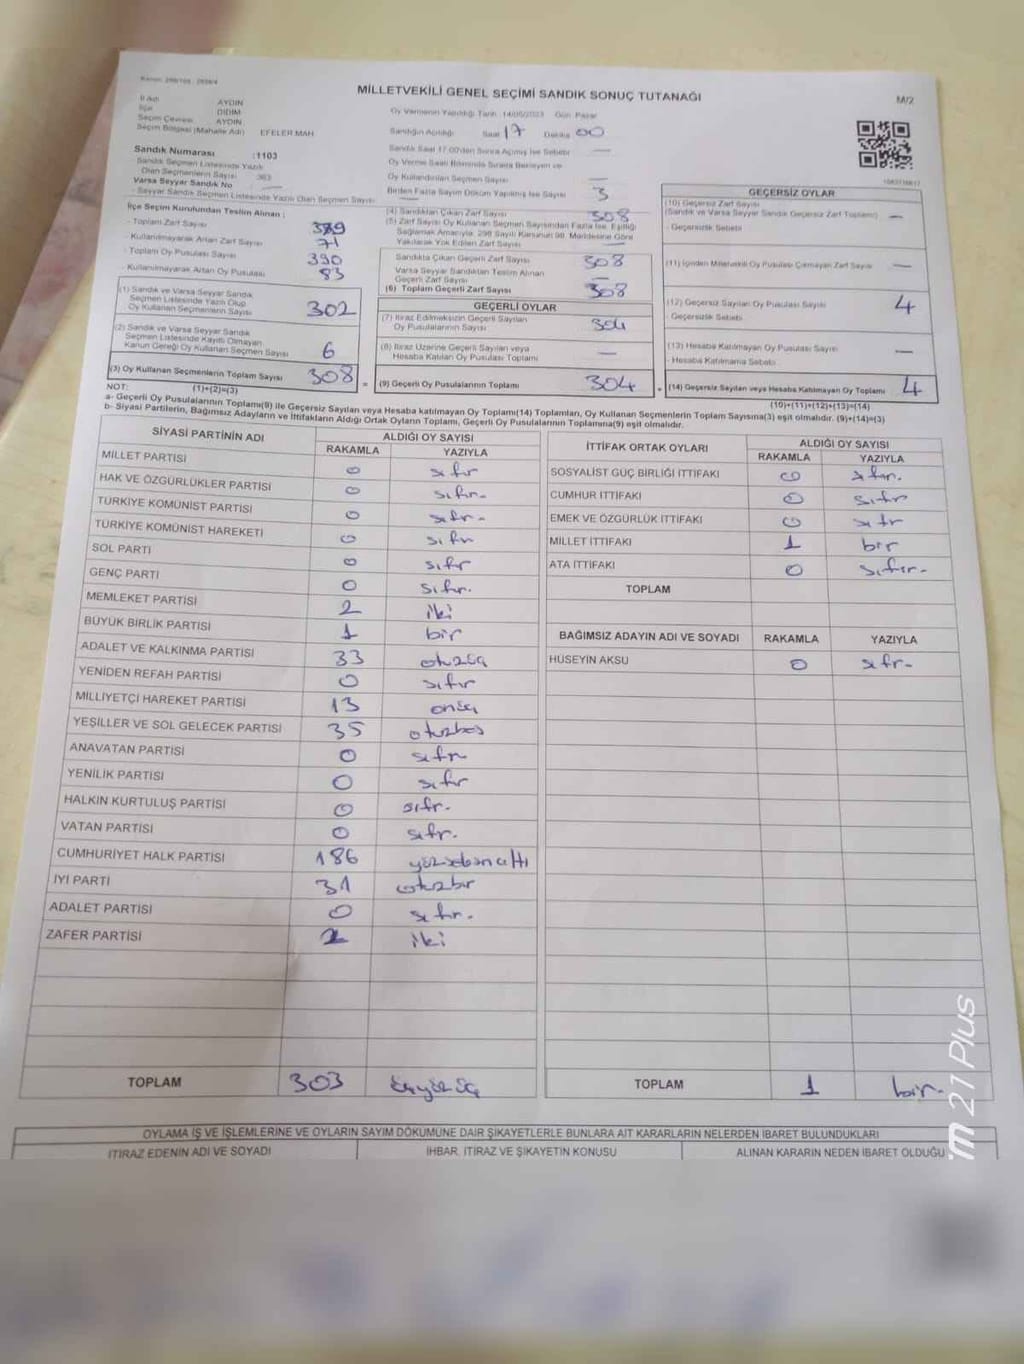 MİLLETVEKİLİ GENEL SEÇİMİ SANDIK SONUÇ TUTANAĞI
M/2
İl Adı AYDIN
İlçe DİDİM
Seçim Çevresi AYDIN
Seçim Bölgesi (Mahalle Adı) EFELER MAH
Oy Vermenin Yapıldığı Tarih : 14/05/2023 Gün Pazar
Sandığın Açıldığı Saat 17 Dakika 00
Sandık Saat 17:00'den Sonra Açılmış İse Sebebi —
Oy Kullandırılan Seçmen Sayısı —
Birden Fazla Sayım Döküm Yapılmış İse Sayısı 3
Sandık Numarası :1103
Sandık Seçmen Listesinde Yazılı
Olan Seçmenlerin Sayısı 363
Varsa Seyyar Sandık No —
- Seyyar Sandık Seçmen Listesinde Yazılı Olan Seçmen Sayısı —
İlçe Seçim Kurulundan Teslim Alınan ;
- Toplam Zarf Sayısı
- Kullanılmayarak Artan Zarf Sayısı 71
- Toplam Oy Pusulası Sayısı 390
- Kullanılmayarak Artan Oy Pusulası 83
(1) Sandık ve Varsa Seyyar Sandık
Seçmen Listesinde Yazılı Olup
Oy Kullanan Seçmenlerin Sayısı 302
(2) Sandık ve Varsa Seyyar Sandık
Seçmen Listesinde Kayıtlı Olmayan
Kanun Gereği Oy Kullanan Seçmen Sayısı 6
(3) Oy Kullanan Seçmenlerin Toplam Sayısı 308
(1)+(2)=(3)
(4) Sandıktan Çıkan Zarf Sayısı 308
(5) Zarf Sayısı Oy Kullanan Seçmen Sayısından Fazla İse, Eşitliği
Sağlamak Amacıyla, 298 Sayılı Kanunun 98. Maddesine Göre
Yakılarak Yok Edilen Zarf Sayısı —
Sandıkta Çıkan Geçerli Zarf Sayısı 308
Varsa Seyyar Sandıktan Teslim Alınan
Geçerli Zarf Sayısı
(6) Toplam Geçerli Zarf Sayısı 308
GEÇERLİ OYLAR
(7) İtiraz Edilmeksizin Geçerli Sayılan
Oy Pusulalarının Sayısı 304
(8) İtiraz Üzerine Geçerli Sayılan veya
Hesaba Katılan Oy Pusulası Toplamı —
= (9) Geçerli Oy Pusulalarının Toplamı 304
GEÇERSİZ OYLAR
(10) Geçersiz Zarf Sayısı
(Sandık ve Varsa Seyyar Sandık Geçersiz Zarf Toplamı) —
- Geçersizlik Sebebi
(11) İçinden Milletvekili Oy Pusulası Çıkmayan Zarf Sayısı —
(12) Geçersiz Sayılan Oy Pusulası Sayısı 4
- Geçersizlik Sebebi
(13) Hesaba Katılmayan Oy Pusulası Sayısı —
- Hesaba Katılmama Sebebi
+ (14) Geçersiz Sayılan veya Hesaba Katılmayan Oy Toplamı 4
(10)+(11)+(12)+(13)=(14)
NOT:
a- Geçerli Oy Pusulalarının Toplamı(9) ile Geçersiz Sayılan veya Hesaba katılmayan Oy Toplamı(14) Toplamları, Oy Kullanan Seçmenlerin Toplam Sayısına(3) eşit olmalıdır. (9)+(14)=(3)
b- Siyasi Partilerin, Bağımsız Adayların ve İttifakların Aldığı Ortak Oyların Toplamı, Geçerli Oy Pusulalarının Toplamına(9) eşit olmalıdır.
SİYASİ PARTİNİN ADI ALDIĞI OY SAYISI
RAKAMLA YAZIYLA
MİLLET PARTİSİ 0 sıfır
HAK VE ÖZGÜRLÜKLER PARTİSİ 0 sıfır.
TÜRKİYE KOMÜNİST PARTİSİ 0 sıfır.
TÜRKİYE KOMÜNİST HAREKETİ 0 sıfır
SOL PARTİ 0 sıfır
GENÇ PARTİ 0 sıfır.
MEMLEKET PARTİSİ 2 iki
BÜYÜK BİRLİK PARTİSİ 1 bir
ADALET VE KALKINMA PARTİSİ 33 otuzüç
YENİDEN REFAH PARTİSİ 0 sıfır
MİLLİYETÇİ HAREKET PARTİSİ 13 onüç
YEŞİLLER VE SOL GELECEK PARTİSİ 35 otuzbeş
ANAVATAN PARTİSİ 0 sıfır
YENİLİK PARTİSİ 0 sıfır
HALKIN KURTULUŞ PARTİSİ 0 sıfır.
VATAN PARTİSİ 0 sıfır.
CUMHURİYET HALK PARTİSİ 186 yüzseksenaltı
İYİ PARTİ 31 otuzbir
ADALET PARTİSİ 0 sıfır.
ZAFER PARTİSİ 2 iki
TOPLAM 303 üçyüzüç
İTTİFAK ORTAK OYLARI ALDIĞI OY SAYISI
RAKAMLA YAZIYLA
SOSYALİST GÜÇ BİRLİĞİ İTTİFAKI 0 sıfır.
CUMHUR İTTİFAKI 0 sıfır
EMEK VE ÖZGÜRLÜK İTTİFAKI 0 sıfır
MİLLET İTTİFAKI 1 bir
ATA İTTİFAKI 0 sıfır.
TOPLAM
BAĞIMSIZ ADAYIN ADI VE SOYADI RAKAMLA YAZIYLA
HÜSEYİN AKSU 0 sıfır.
TOPLAM 1 bir.
OYLAMA İŞ VE İŞLEMLERİNE VE OYLARIN SAYIM DÖKÜMÜNE DAİR ŞİKAYETLERLE BUNLARA AİT KARARLARIN NELERDEN İBARET BULUNDUKLARI
İTİRAZ EDENİN ADI VE SOYADI İHBAR, İTİRAZ VE ŞİKAYETİN KONUSU ALINAN KARARIN NEDEN İBARET OLDUĞU
m 21 Plus